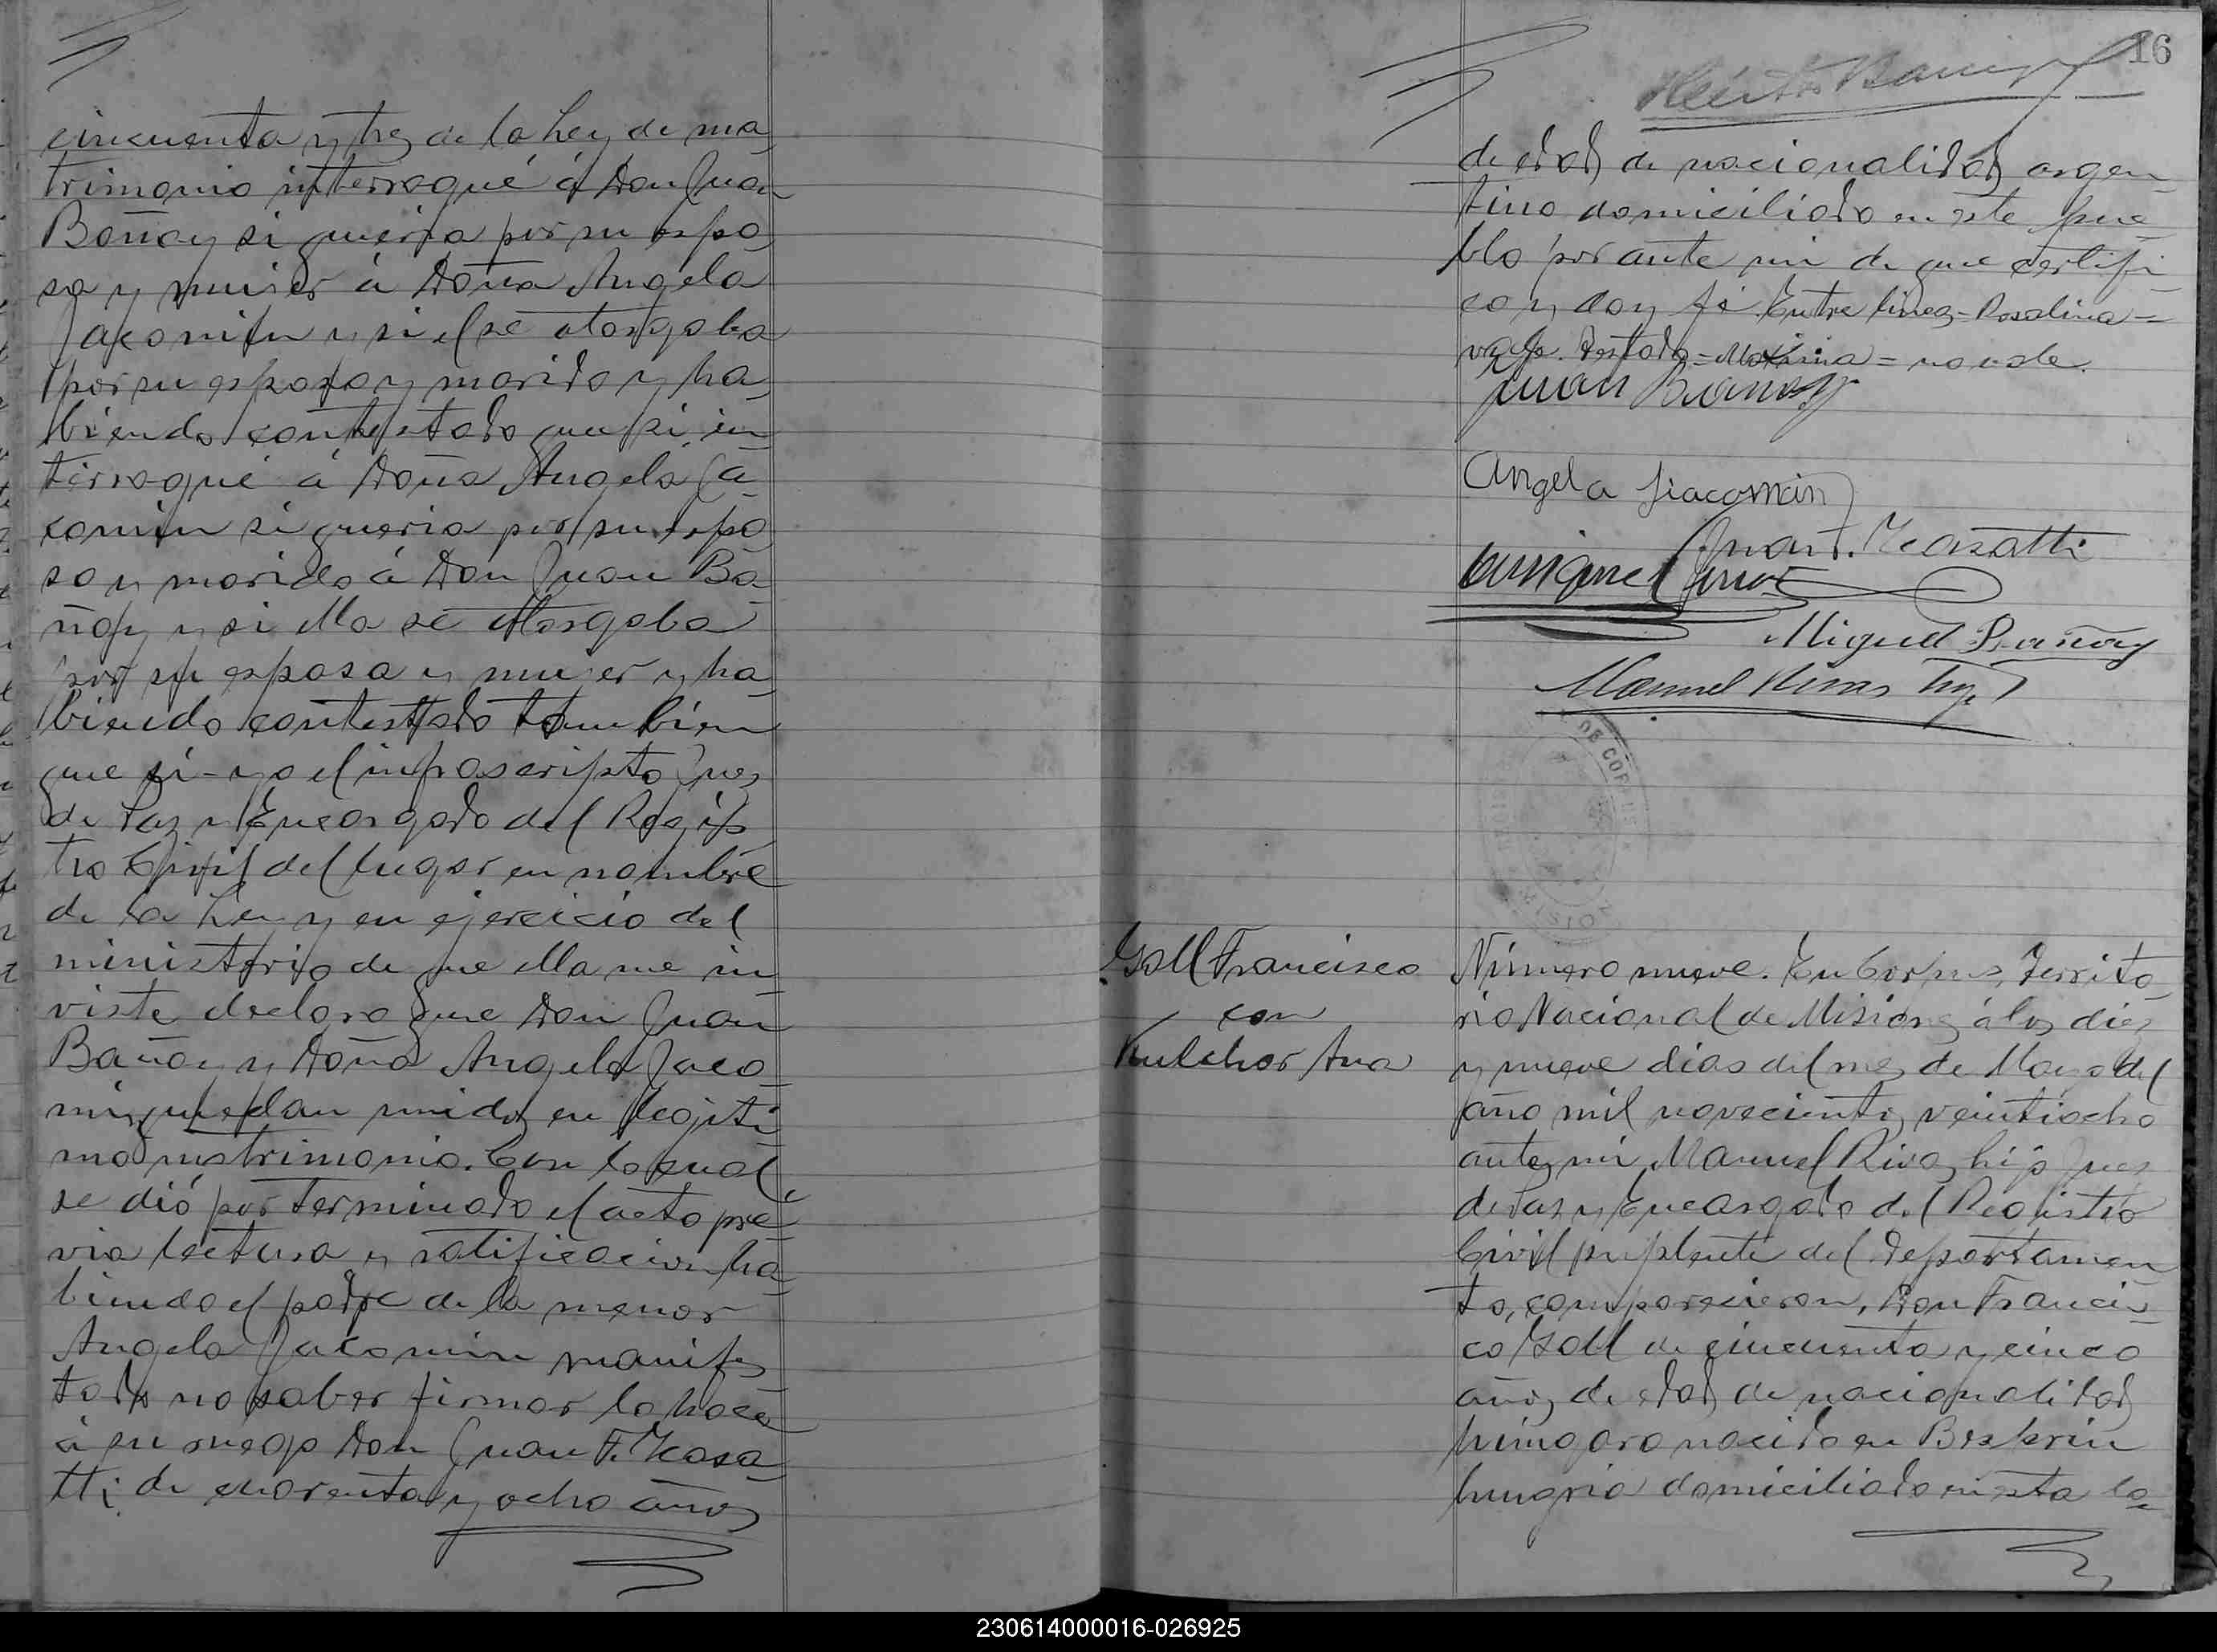 cincuenta y tres de la Ley de ma
trimonio interrogué á Don Juan
Bañay si queria por su espo
sa y mujer á Doña Angela
Jacomin y si el se otorgaba
por su esposo y marido y ha
biendo contestado que si, in
terrogué á Doña Angela Ja
comin si queria por su espo
so y marido á Don Juan Ba
ñay y si ella se otorgaba
por su esposa y mujer y ha
biendo contestado tambien
que si - yo el infrascripto Juez
de Paz y Encargado del Regis
tro Civil del lugar en nombre
de la Ley y en ejercicio del
ministerio de que ella me in
viste declaro que Don Juan
Bañay y Doña Angela Jaco
min quedan unidos en legiti
mo matrimonio. Con lo cual
se dió por terminado el acto pré
via lectura y ratificacion ha
biendo el padre de la menor
Angela Jacomin manifes
tado no saber firmar lo hace
á su ruego Don Juan F.
tti de cuarenta y ocho años
16
de edad de nacionalidad argen
tino domiciliado en este pue
blo por ante mi de que certifi
co y doy fé. Entre lineas - Rosalina =
vale. Testado = Maxima = no vale.
Juan Bañay
Angela Giacomin
Juan F.
Miguel Bañay
Manuel Rivas hijo
Goll Francisco
con
Kulchar Ana
Número nueve. En Corpus, Territo
rio Nacional de Misiones á los diez
y nueve dias del mes de Mayo del
año mil novecientos veintiocho
ante mi, Manuel Rivas hijo Juez
de Paz y Encargado del Registro
Civil suplente del Departamen
to, comparecieron, Don Francis
co Goll de cincuenta y cinco
años de edad de nacionalidad
húngaro nacido en
hungria domiciliado en esta lo
230614000016-026925